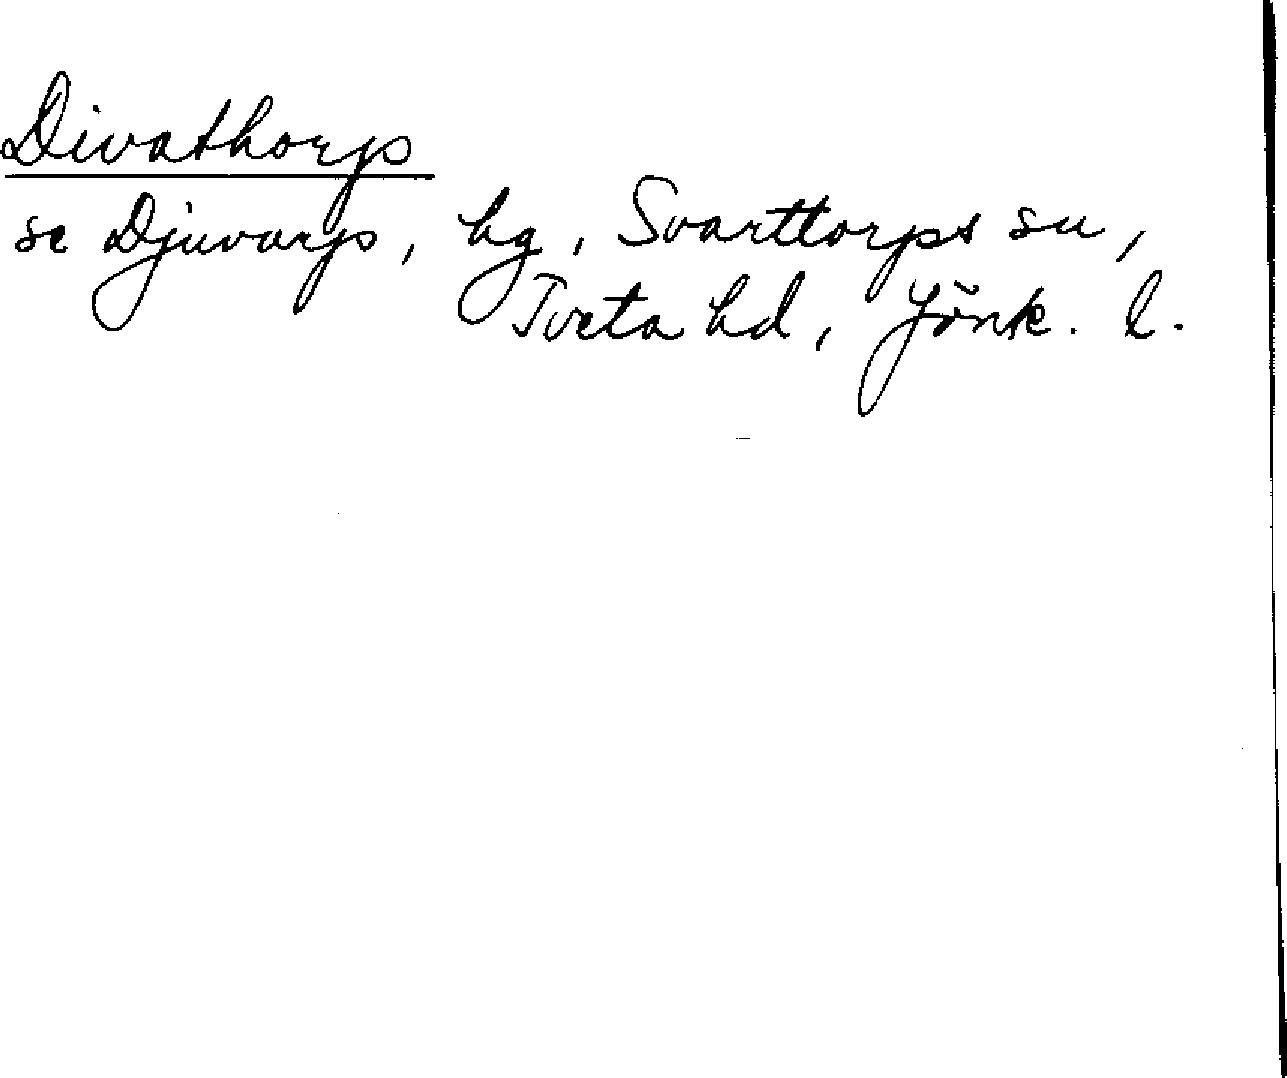 Divathorp
se Djuvarp, hg, Svarttorps sn,
Tveta hd, Jönk. l.